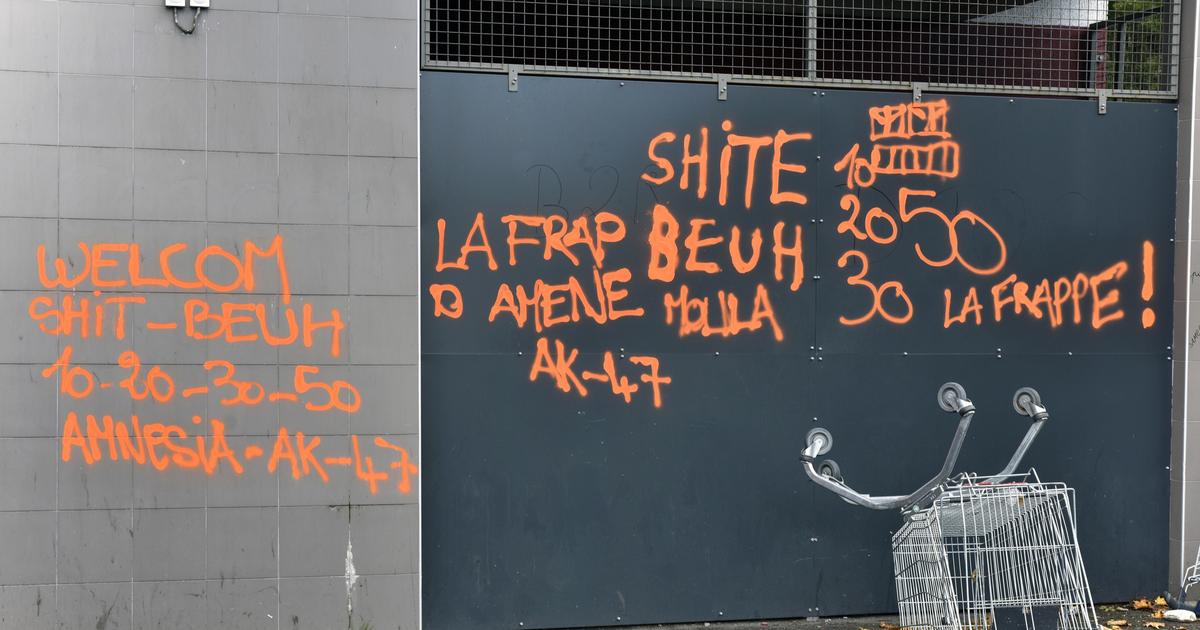 WELCOM
SHIT-BEUH
10-20-30-50
AMNESIA-AK-47
SHITE
LA FRAP BEUH
D AMENE MOULA
AK-47
10
20 50
30 LA FRAPPE !